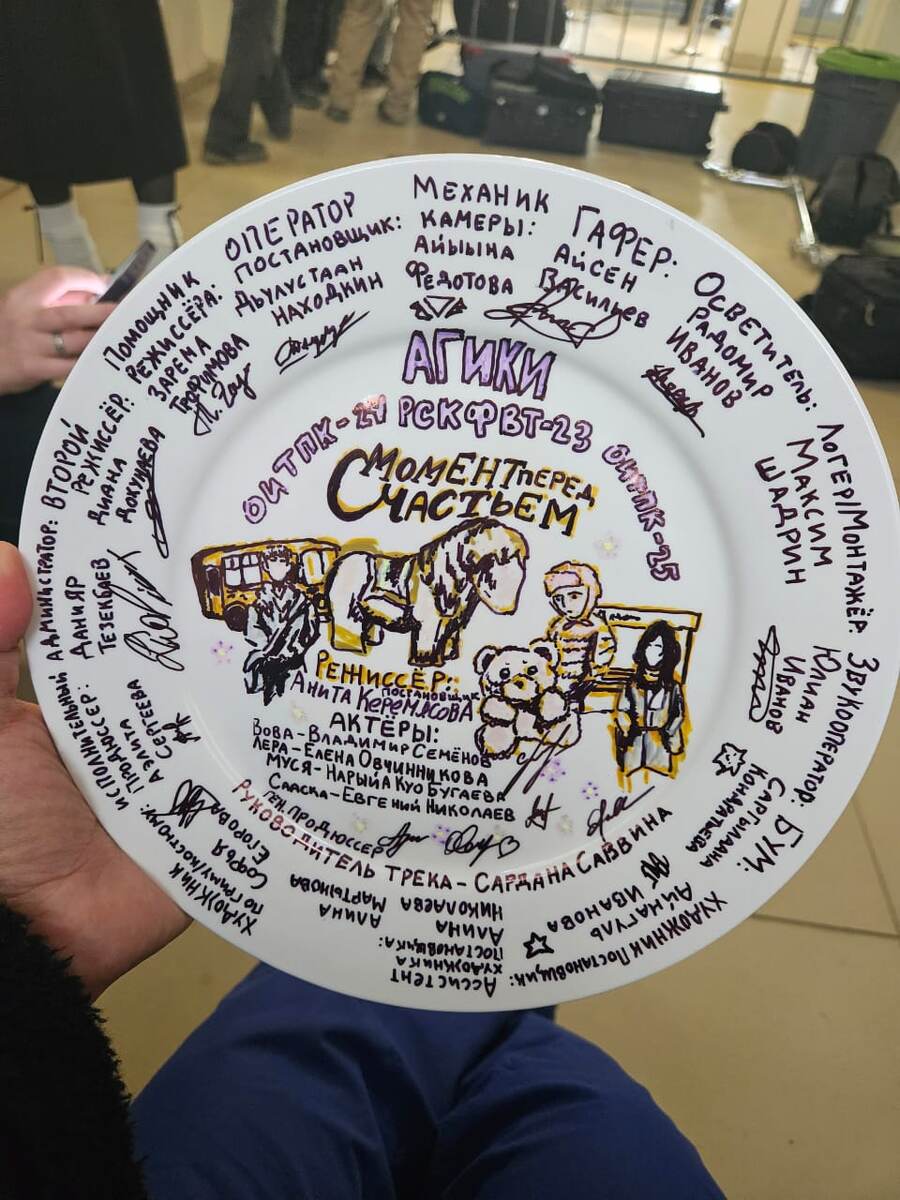 АГИКИ
ОИТПК-24 РСКФВТ-23 ОИТПК-25
МОМЕНТ ПЕРЕД
СЧАСТЬЕМ
РЕЖИССЁР:
ПОСТАНОВЩИК
АНИТА КЕРЕМЯСОВА
АКТЁРЫ:
ВОВА-ВЛАДИМИР СЕМЁНОВ
ЛЕРА-ЕЛЕНА ОВЧИННИКОВА
МУСЯ-НАРЫЙА КУО БУГАЕВА
СААСКА-ЕВГЕНИЙ НИКОЛАЕВ
ГЕН. ПРОДЮССЕР
РУКОВОДИТЕЛЬ ТРЕКА - САРДАНА САВВИНА
ИСПОЛНИТЕЛЬНЫЙ
ПРОДЮССЕР:
АЭЛИТА
СЕРГЕЕВА
АДМИНИСТРАТОР:
ДАНИЯР
ТЕЗЕКБАЕВ
ВТОРОЙ
РЕЖИССЁР:
ДИАНА
ДОКУНАЕВА
ПОМОЩНИК
РЕЖИССЁРА:
ЗАРЕМА
ОПЕРАТОР
ПОСТАНОВЩИК:
ДЬУЛУСТААН
НАХОДКИН
МЕХАНИК
КАМЕРЫ:
АЙЫЫНА
ФЕДОТОВА
ГАФЕР:
АЙСЕН
ВАСИЛЬЕВ
ОСВЕТИТЕЛЬ:
РАДОМИР
ИВАНОВ
ЛОГЕР/МОНТАЖЁР:
МАКСИМ
ШАДРИН
ЗВУКООПЕРАТОР:
ЮЛИАН
ИВАНОВ
БУМ:
САРГЫЛАНА
КОНДРАТЬЕВА
ХУДОЖНИК ПОСТАНОВЩИК:
АЙНАГУЛЬ
ИВАНОВА
АССИСТЕНТ
ХУДОЖНИКА
ПОСТАНОВЩИКА:
АЛИНА
НИКОЛАЕВА
АЛИНА
МАРТЫНОВА
ХУДОЖНИК
ПО ГРИМУ/КОСТЮМУ:
СОФЬЯ
ЕГОРОВА